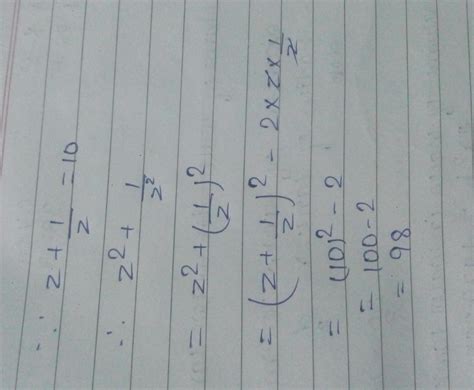 ∵ z + 1/z = 10
∴ z² + 1/z²
= z² + (1/z)²
= (z + 1/z)² - 2 × z × 1/z
= (10)² - 2
= 100 - 2
= 98